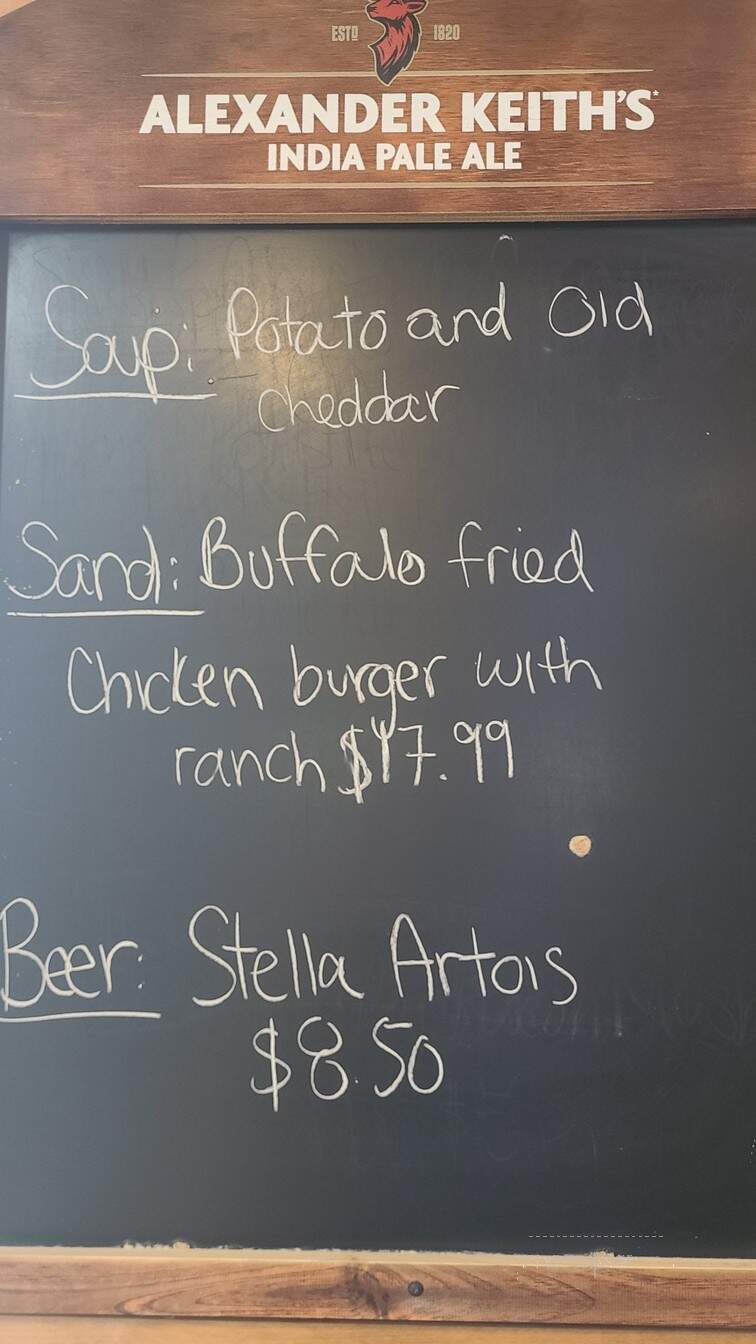 ESTD 1820
ALEXANDER KEITH'S
INDIA PALE ALE
Soup: Potato and Old
cheddar
Sand: Buffalo fried
Chicken burger with
ranch $17.99
Beer: Stella Artois
$8.50